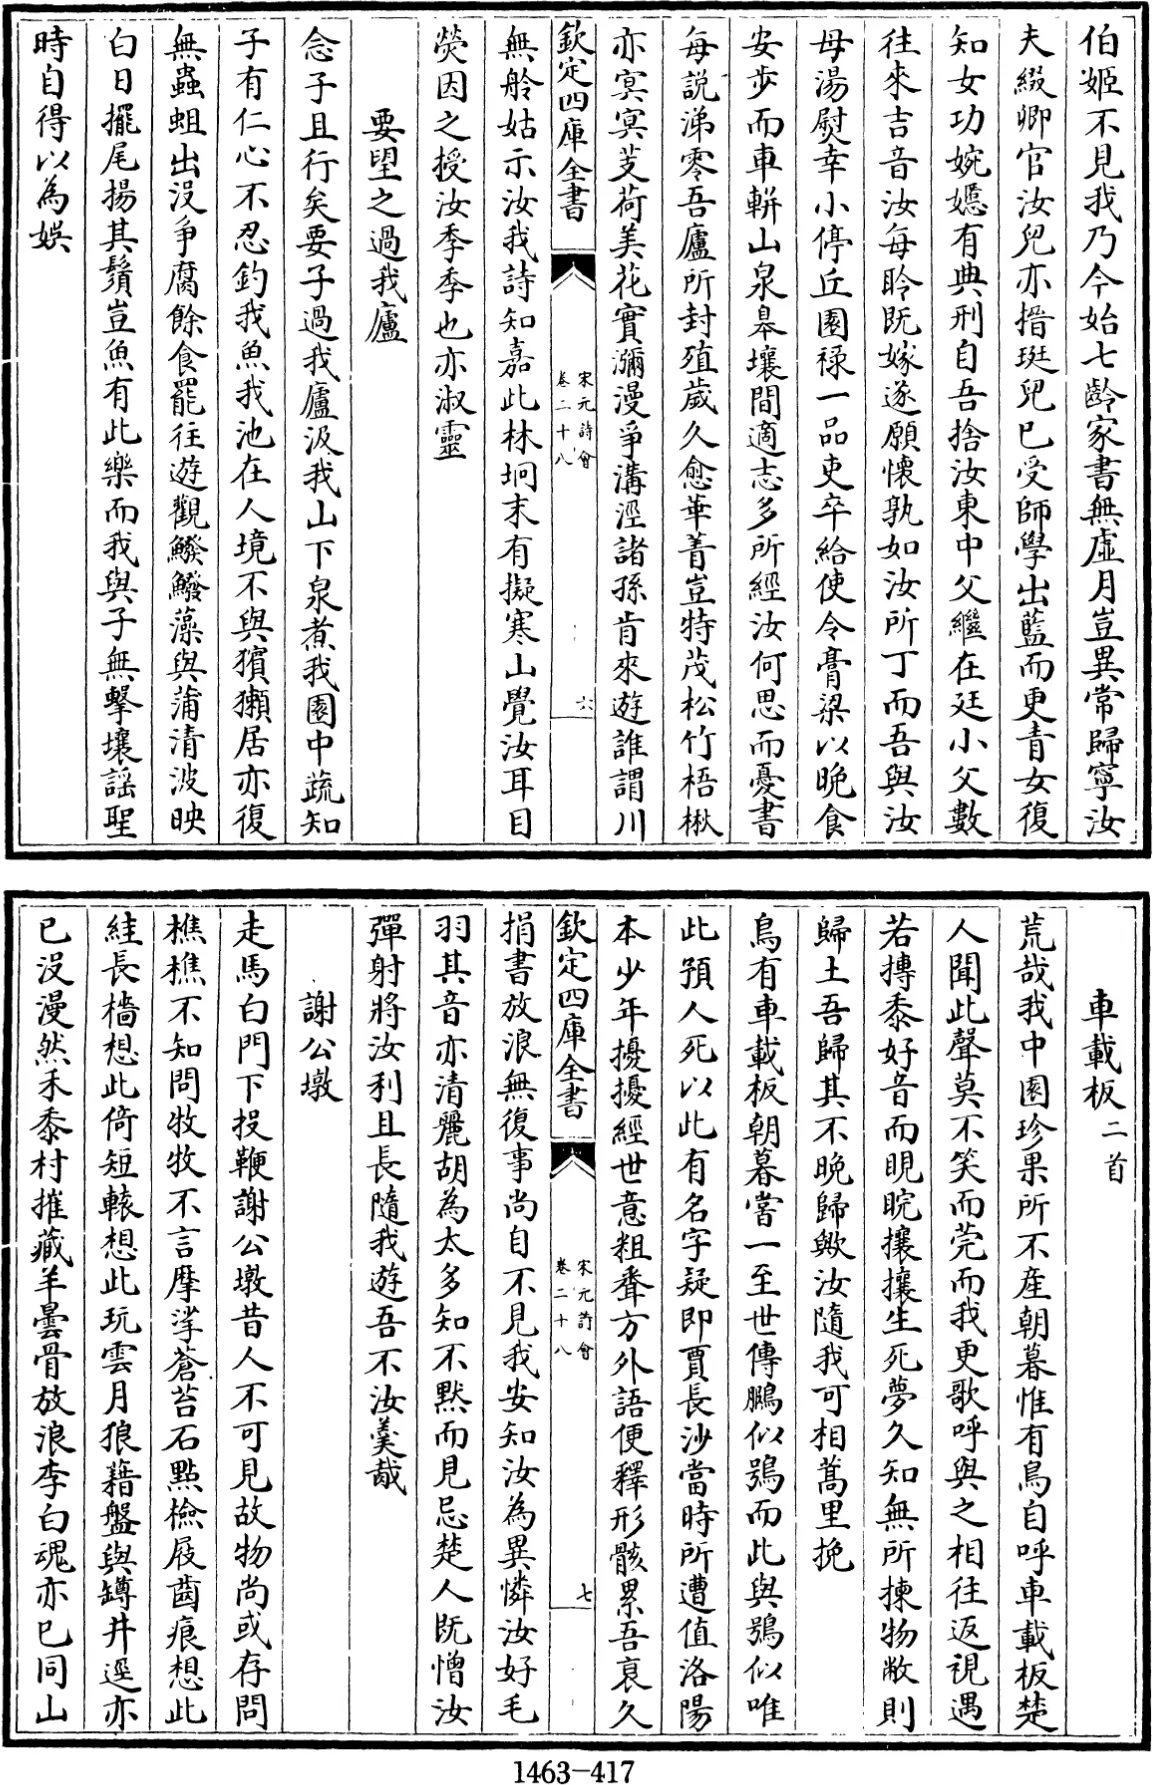 伯姬不見我乃今始七齡家書無虛月豈異常歸寧汝
夫綴卿官汝兒亦搢珽兒已受師學出藍而更青女復
知女功婉嫕有典刑自吾捨汝東中父繼在廷小父數
往來吉音汝每聆既嫁遂願懷孰如汝所丁而吾與汝
母湯熨幸小停丘園祿一品吏卒給使令膏粱以晚食
安步而車軿山泉皋壤間適志多所經汝何思而憂書
每説涕零吾廬所封殖歲久愈華菁豈特茂松竹梧楸
亦冥冥芰荷美花實瀰漫爭溝涇諸孫肯來遊誰謂川
欽定四庫全書
宋元詩會
卷二十八
六
無舲姑示汝我詩知嘉此林坰末有擬寒山覺汝耳目
熒因之授汝季季也亦淑靈
要望之過我廬
念子且行矣要子過我廬汲我山下泉煮我園中蔬知
子有仁心不忍釣我魚我池在人境不與獱獺居亦復
無蟲蛆出没爭腐餘食罷往遊觀鱍鱍藻與蒲清波映
白日擺尾揚其鬚豈魚有此樂而我與子無擊壤謡聖
時自得以為娛
車載板二首
荒哉我中園珍果所不産朝暮惟有鳥自呼車載板楚
人聞此聲莫不笑而莞而我更歌呼與之相往返視遇
若摶黍好音而睍睆攘攘生死夢久知無所揀物敝則
歸土吾歸其不晚歸歟汝隨我可相蒿里挽
鳥有車載板朝暮嘗一至世傳鵩似鴞而此與鴞似唯
此預人死以此有名字疑即賈長沙當時所遭值洛陽
本少年擾擾經世意粗聞方外語便釋形骸累吾衰久
欽定四庫全書
宋元詩會
卷二十八
七
捐書放浪無復事尚自不見我安知汝為異憐汝好毛
羽其音亦清麗胡為太多知不默而見忌楚人既憎汝
彈射將汝利且長隨我遊吾不汝羹胾
謝公墩
走馬白門下投鞭謝公墩昔人不可見故物尚或存問
樵樵不知問牧牧不言摩挲蒼苔石點檢屐齒痕想此
絓長檣想此倚短轅想此玩雲月狼籍盤與罇井逕亦
已没漫然禾黍村摧藏羊曇骨放浪李白魂亦已同山
1463-417